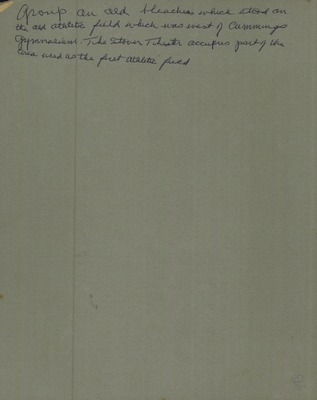 Group on old bleachers which stood on
the old athletic field which was west of Cummings
Gymnasium. The Stover Theater occupies part of the
area used as the first athletic field